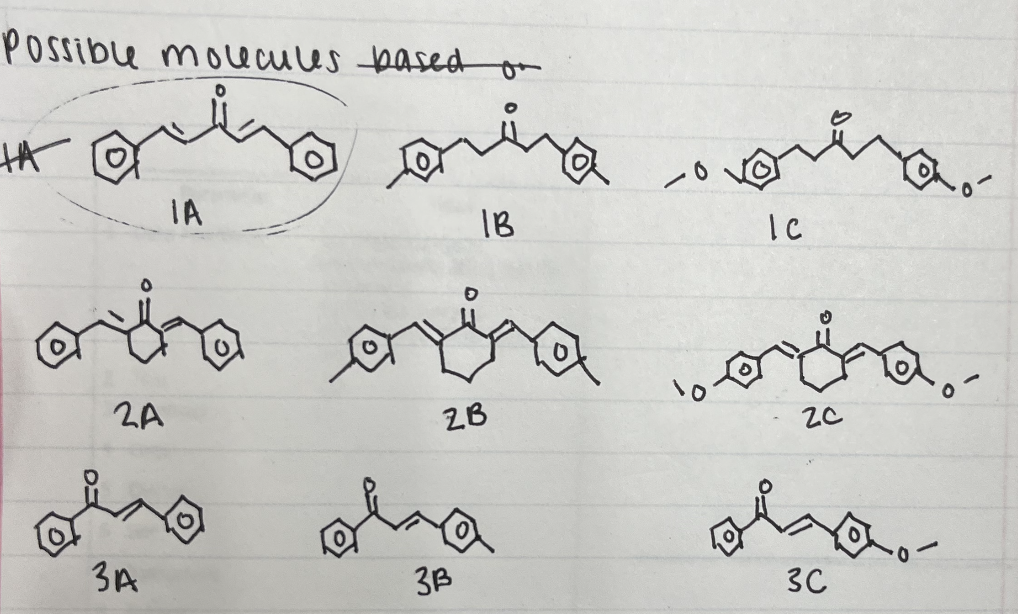 Possible molecules based on
1A
O
O
O
O
O
1A
1B
1C
O
O
O
O
O
2A
2B
2C
O
O
O
O
3A
3B
3C